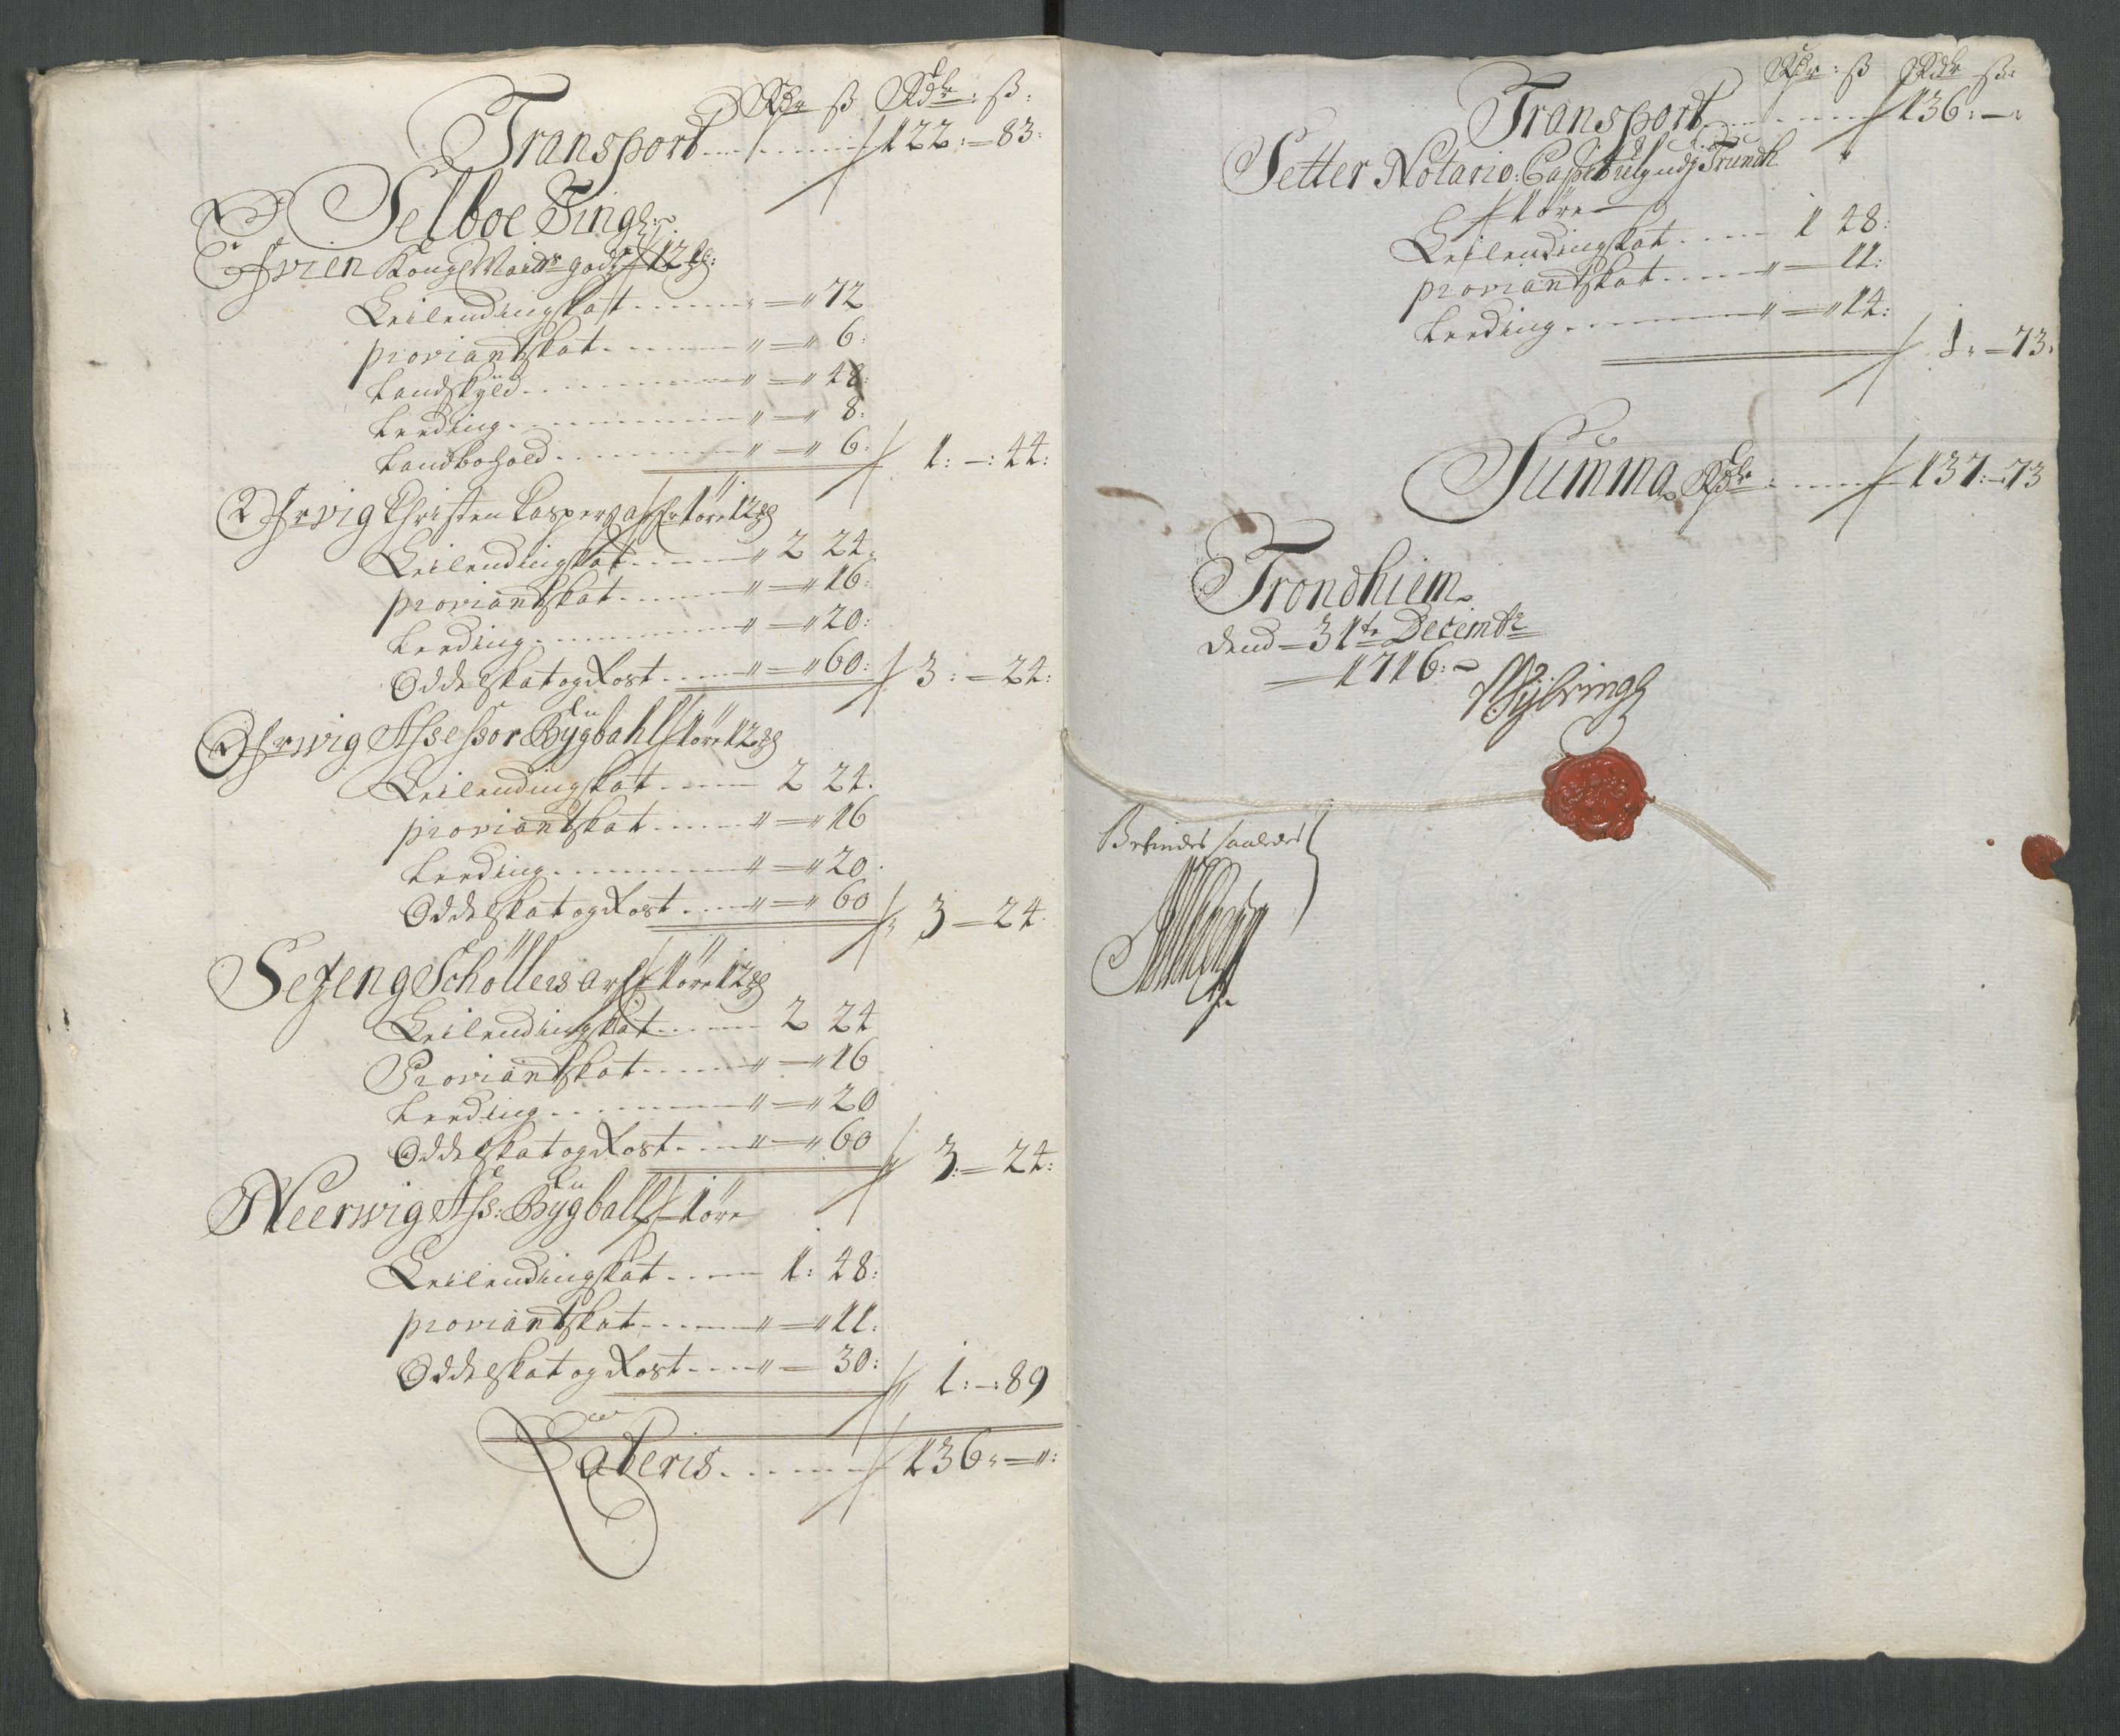 Rdr ß Rdr: ß:
Transport 122:–83:
Selboe Tingl:
Kongl May godz 12
Leilendingskat 72
proviantskat 6:
Landskÿld 48:
Leeding 8:
Landbohold 6: 1:–:44:
Christen Caspers 1 öre 12
Leilendingskat 2 24:
proviantskat 16:
Leeding 20:
Oddelskat og Rost 60: 3:–24:
Assessor Bÿgbahl 1 öre 12
Leilendingskat 2 24.
proviantskat 16
Leeding 20
Oddelskat og Rost 60 3–24.
Schöllers arf 1 öre 12
Leilendingskat 2 24
Proviantskat 16
Leeding 20
Oddelskat og Rost 60 3:–24:
Neerwig Ass: Bÿgball 1 öre
Leilendingskat 1: 48:
proviantskat 11:
Oddelskat og Rost 30: 1:–:89
Lateris 136:–":
Rdr: ß Rdr ß:
Transport 136:–:
Setter Notario
1 öre
Leilendingskat 1 48:
proviantskat 11:
Leeding 14: 1:–73:
Summa Rdr 137:–73
Trondhiem
dend–31te Decembr
1716:–
Befindes saaledes